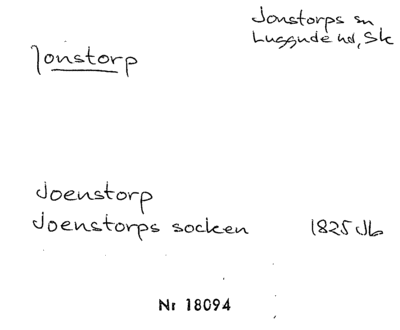 Jonstorps sn
Luggude hd, Sk
Jonstorp
Joenstorp
Joenstorps socken 1825 Jb
Nr 18094